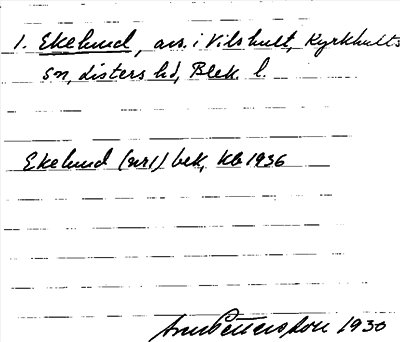 1. Ekelund, avs. i Vilshult, Kyrkhults
sn, Listers hd, Blek. l.
Ekelund (nr1) bek, Kb 1936
Pettersson 1930